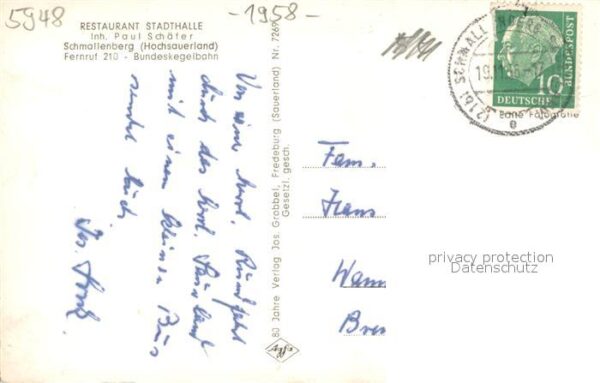 5948
-1958-
RESTAURANT STADTHALLE
Inh. Paul Schäfer
Schmallenberg (Hochsauerland)
Fernruf 210 - Bundeskegelbahn
Von einer herrl. Rundfahrt
durch das herrl. Sauerland
mit einem kleinen Bus
sendet Euch
Jos.
80 Jahre Verlag Jos. Grobbel, Fredeburg (Sauerland) Nr. 7269
Gesetzl. gesch.
(216) SCHMALLENBERG
19.11.
e
10
DEUTSCHE
BUNDESPOST
Fotografie
Fam.
Hans
Wann
Bre
privacy protection
Datenschutz